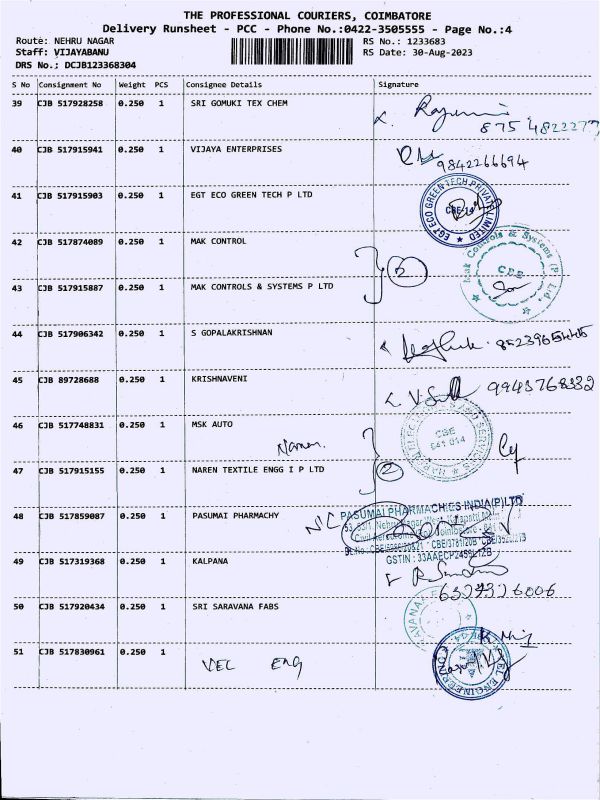 THE PROFESSIONAL COURIERS, COIMBATORE
Delivery Runsheet - PCC - Phone No.:0422-3505555 - Page No.:4
Route: NEHRU NAGAR
RS No.: 1233683
Staff: VIJAYABANU
RS Date: 30-Aug-2023
DRS No.: DCJB123368304
S No Consignment No Weight PCS Consignee Details Signature
39 CJB 517928258 0.250 1 SRI GOMUKI TEX CHEM
40 CJB 517915941 0.250 1 VIJAYA ENTERPRISES
9842266694
41 CJB 517915903 0.250 1 EGT ECO GREEN TECH P LTD
EGT ECO GREEN TECH PRIVATE LIMITED
CBE-14
42 CJB 517874089 0.250 1 MAK CONTROL
43 CJB 517915887 0.250 1 MAK CONTROLS & SYSTEMS P LTD
Mak Controls & Systems (P) Ltd.,
CBE
44 CJB 517906342 0.250 1 S GOPALAKRISHNAN
45 CJB 89728688 0.250 1 KRISHNAVENI
9943768332
46 CJB 517748831 0.250 1 MSK AUTO
CBE
641 014
Naren
2
47 CJB 517915155 0.250 1 NAREN TEXTILE ENGG I P LTD
48 CJB 517859087 0.250 1 PASUMAI PHARMACHY
PASUMAI PHARMACHIES INDIA(P)LTD
49 CJB 517319368 0.250 1 KALPANA
50 CJB 517920434 0.250 1 SRI SARAVANA FABS
51 CJB 517830961 0.250 1 VEL ENG